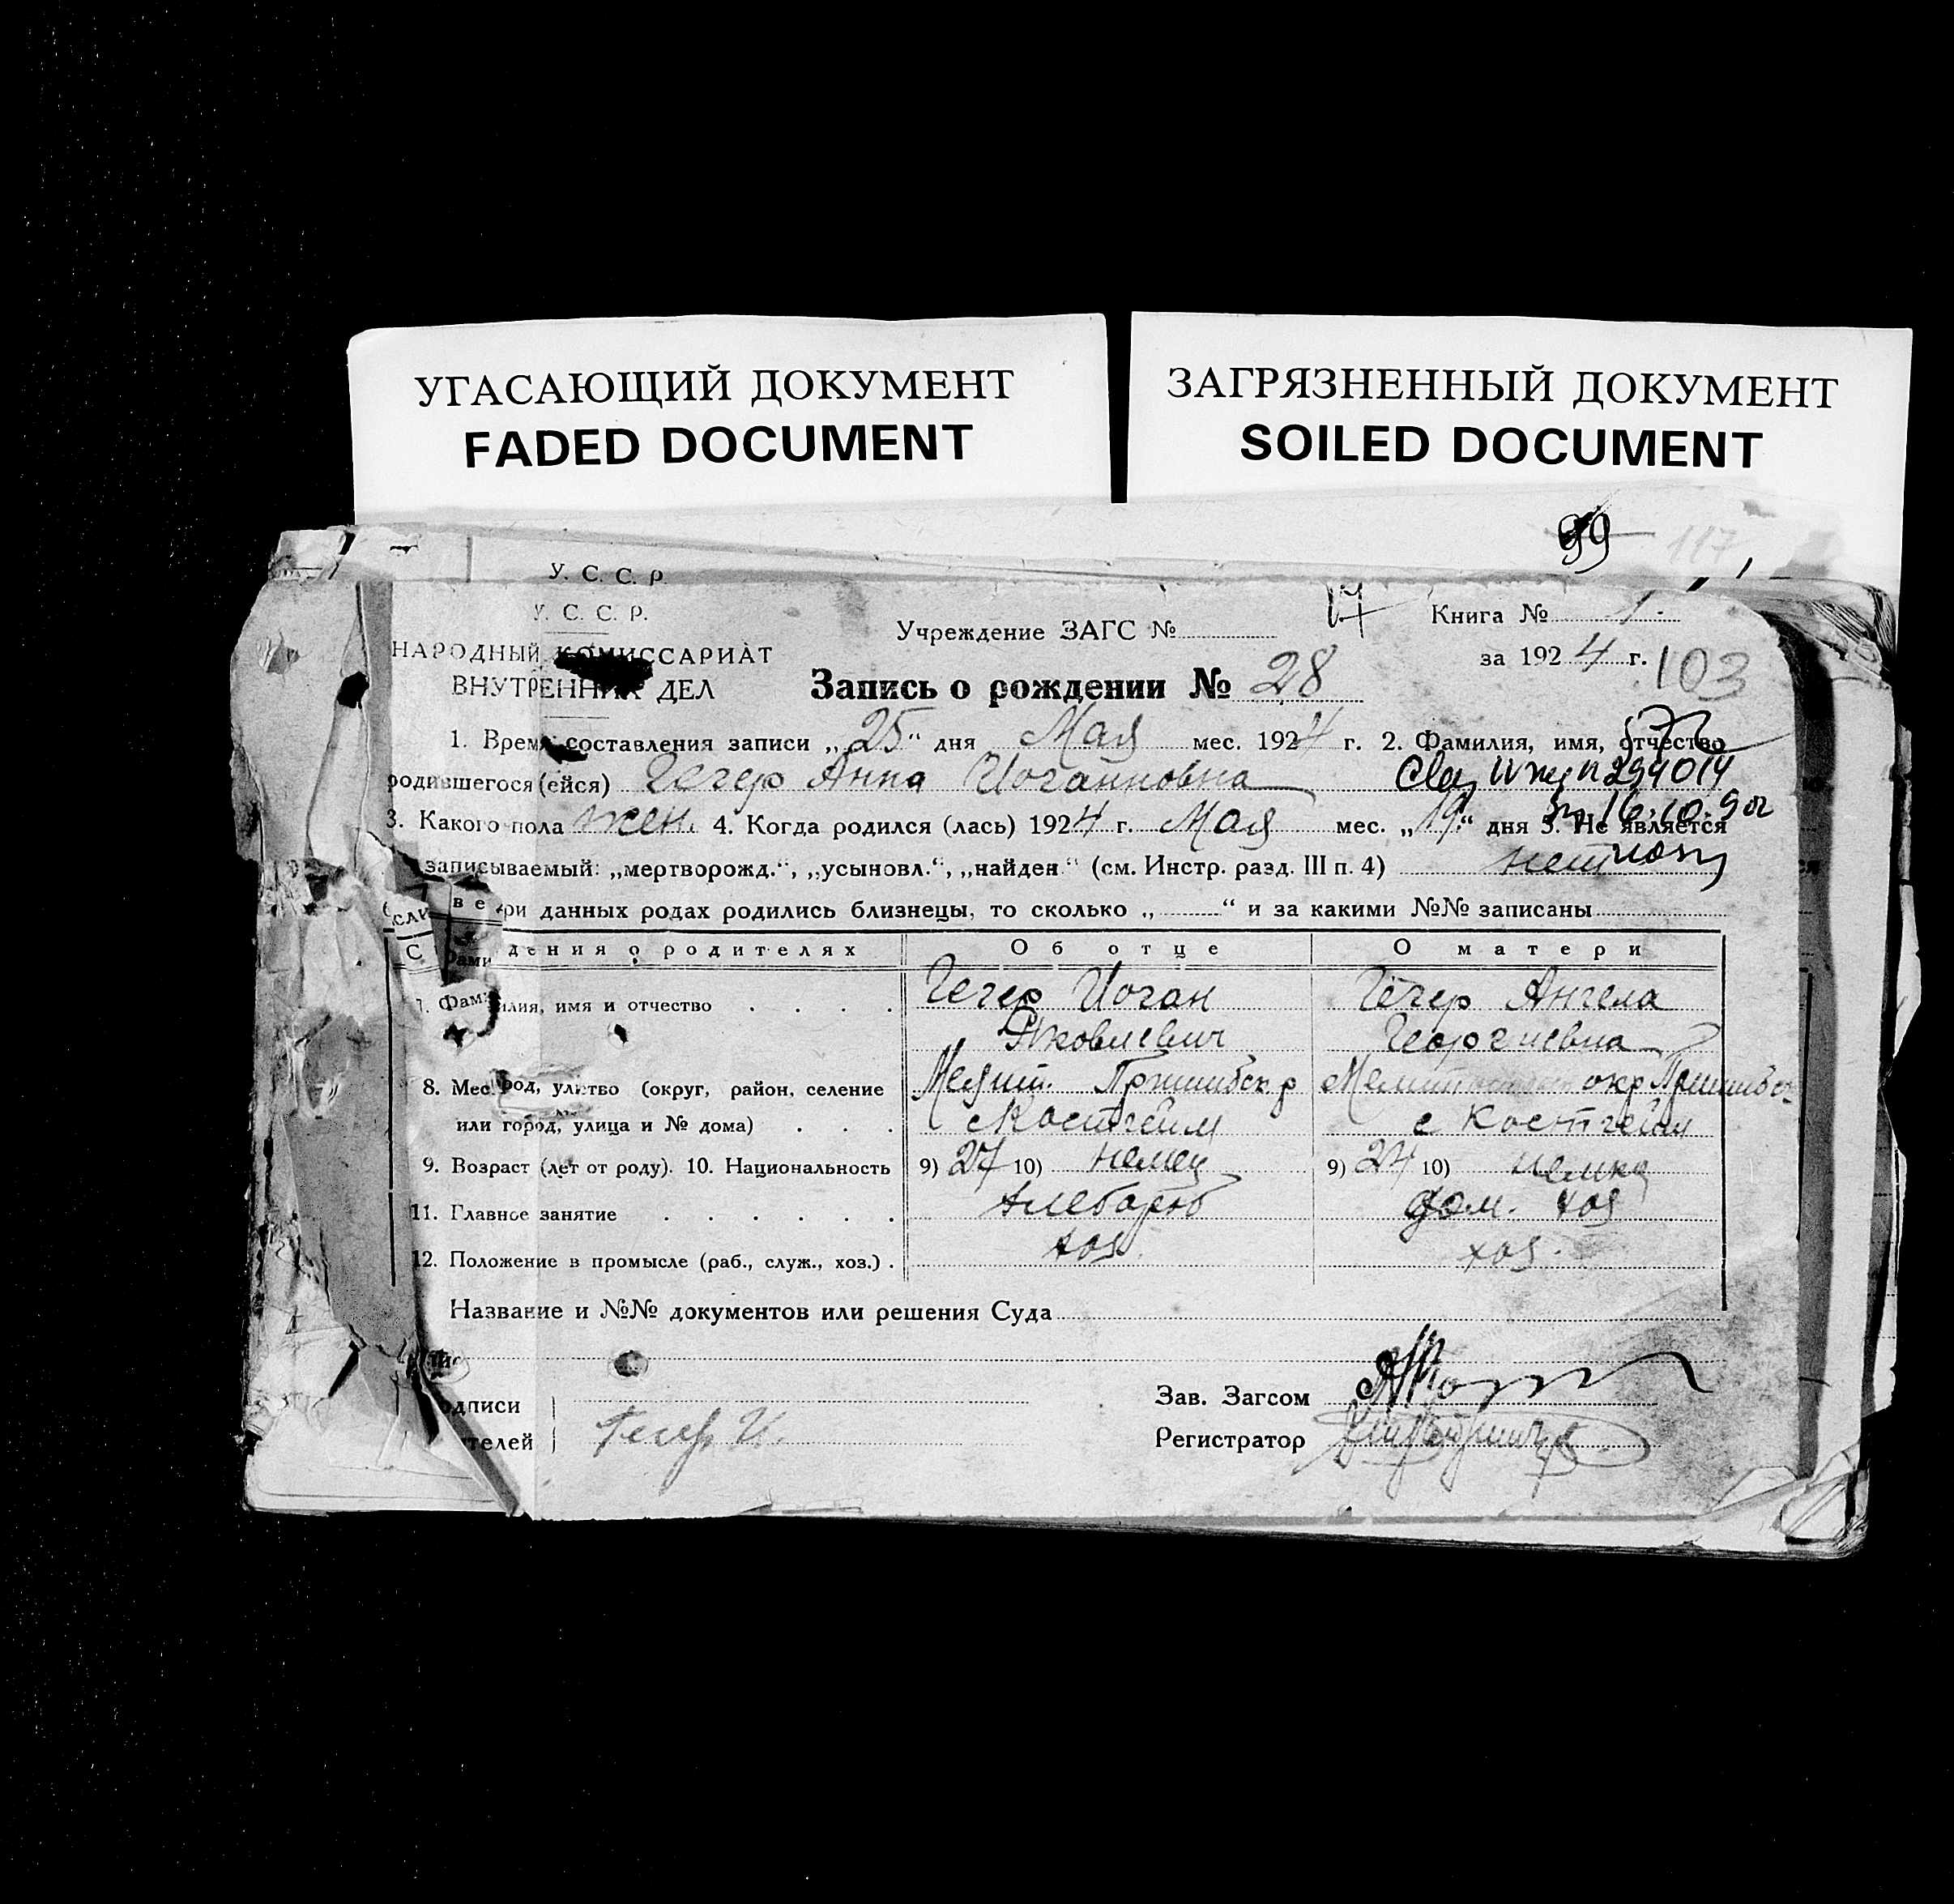 УГАСАЮЩИЙ ДОКУМЕНТ
FADED DOCUMENT
ЗАГРЯЗНЕННЫЙ ДОКУМЕНТ
SOILED DOCUMENT
99 117
У. С. С. Р
У. С. С. Р.
НАРОДНЫЙ КОМИССАРИАТ
ВНУТРЕННИХ ДЕЛ
Учреждение ЗАГС № 17
Книга № 1
за 1924 г. 103
Запись о рождении № 28
1. Время составления записи „25“ дня Мая мес. 1924 г. 2. Фамилия, имя, отчество
родившегося (ейся) Гегер Анна Иоганновна 294014
3. Какого пола жен. 4. Когда родился (лась) 1924 г. Мая мес. „19“ дня 5. Не является
16.10.90г
записываемый: „мертворожд.“, „усыновл.“, „найден.“ (см. Инстр. разд. III п. 4) нет
ри данных родах родились близнецы, то сколько „ “ и за какими №№ записаны
дения о родителях Об отце О матери
7. Фамилия, имя и отчество Гегер Иоган Гегер Ангела
Яковлевич Георгиевна
8. Мес тво (округ, район, селение Мелит. Пришибск. р окр Пришибс
или город, улица и № дома) с Костгейм с Костгейм
9. Возраст (лет от роду). 10. Национальность 9) 27 10) немец 9) 24 10) немка
11. Главное занятие хлебороб дом. хоз
12. Положение в промысле (раб., служ., хоз.) хоз. хоз.
Название и №№ документов или решения Суда
дписи
телей Гегер И.
Зав. Загсом
Регистратор